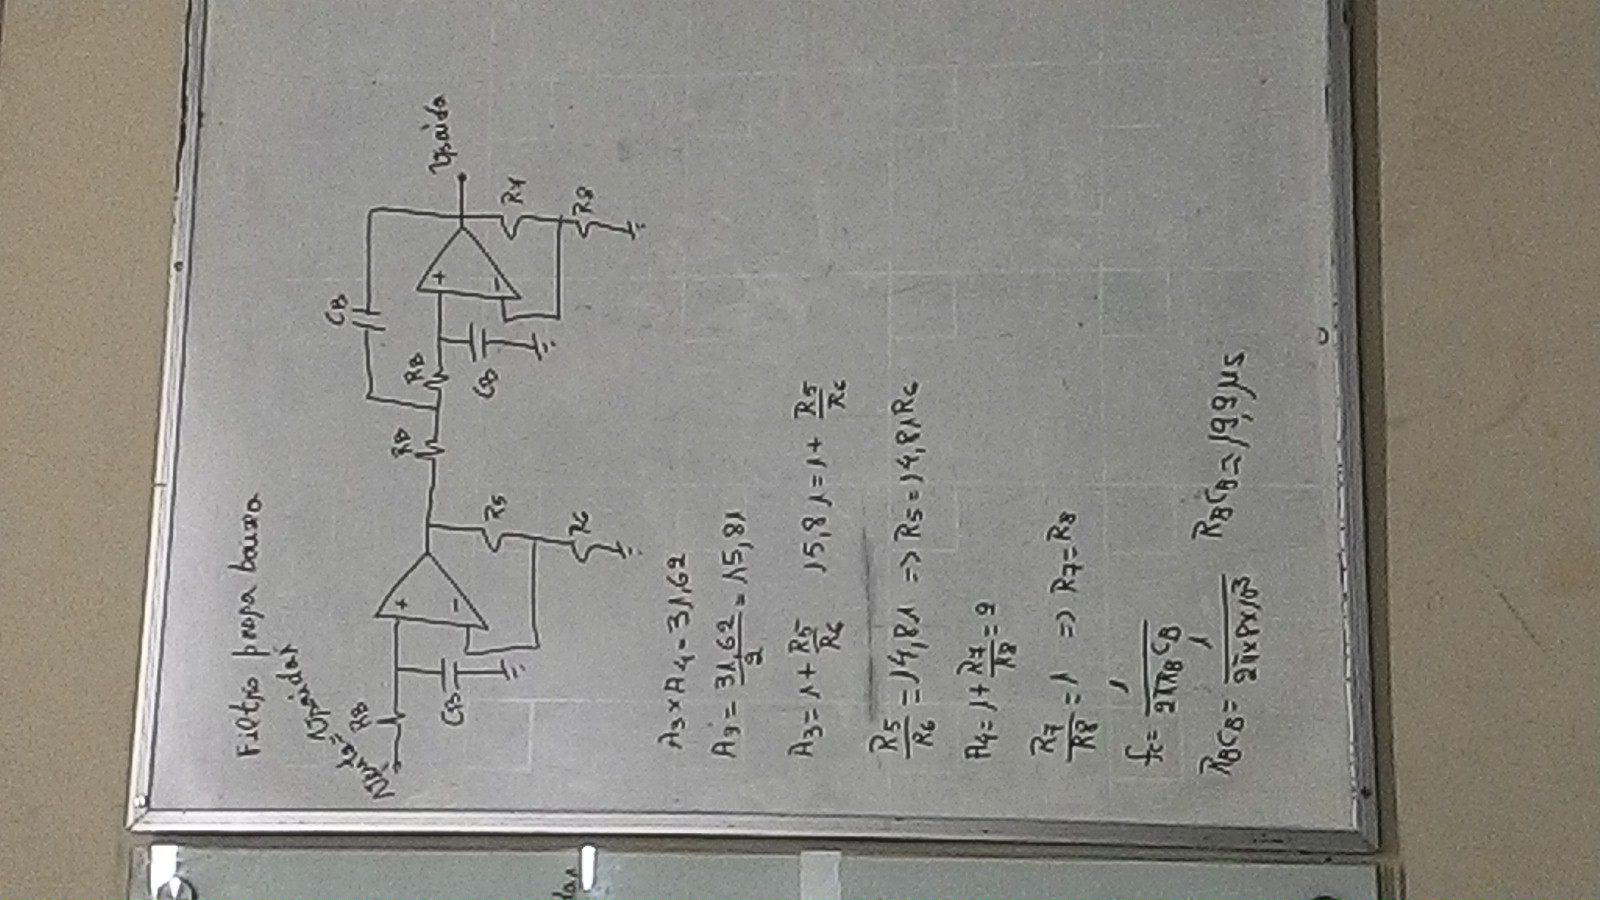 Filtro passa baixa
Ventr = Vsaida1
RB
CB
RB
RB
CB
CB
Vsaida
R5
R6
R7
R8
+
-
+
-
A3 x A4 = 31,62
A3 = 31,62/2 = 15,81
A3 = 1 + R5/R6 15,81 = 1 + R5/R6
R5/R6 = 14,81 => R5 = 14,81R6
A4 = 1 + R7/R8 = 2
R7/R8 = 1 => R7 = R8
fc = 1/2πRBCB
RBCB = 1/2π x 8 x 10³ RBCB = 19,9 μs